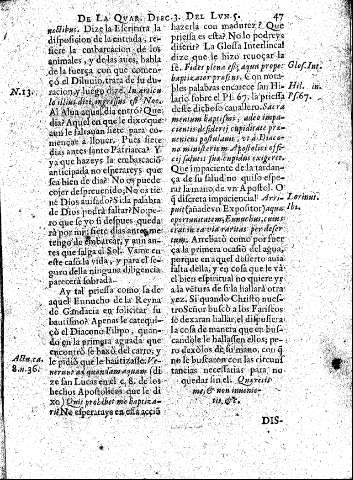 DE LA QUAR. DISC. 3. DEL LUN. 5. 47
noctibus. Dize la Escritura la
disposicion de la entrada, re-
fiere la embarcacion de los
animales, y de las aues, habla
de la fuerça con que comen-
çò el Diluuio, trata de su du-
racion, y luego dize. In articulo
N. 13.
illius diei, ingressus est Noe.
Al Alua aquel dia entrò? Que
dia? Aquel en que le dixo que
aun le faltauan siete para co-
mençar a llouer. Pues siete
dias antes santo Patriarca? Y
ya que hazeys la embarcaciõ
anticipada no esperareys que
sea bien de dia? No os puede
cojer desprevenido, No es tiene
Dios auisado? Si la palabra
de Dios podrà faltar? No; pe-
ro que se yo si despues queda
rà por mi; siete dias antes me
tengo de embarcar, y aun an-
tes que salga el Sol. Vame en
este caso la vida, y para el se-
guro della ninguna diligencia
parecerà sobrada.
Ay tal priessa como la de
aquel Eunucho de la Reyna
de Gandacia en solicitar su
bautismo? Apenas le catequi-
çò el Diacono Filipo, quando
en la primera aguada que
encontrò se baxò del carro, y
Acto. ca.
8. n. 36.
le pidiò que le bautizasse. Ve-
nerunt ad quandam aquam (di
ze san Lucas en el c. 8. de los
hechos Apostolicos que le di
xo) Quis prohibet me baptiza-
ri? No esperaraye en esta acciõ
hazerla con madurez? Que
priessa es esta? No lo podreys
diferir? La Glossa Interlineal
dize que le hizo reuoçar la
fè. Fides plena est; aqua propè:
Glos. Int.
baptizator præsens. Con nota-
bles palabras encarece san Hi-
Hil. in
lario sobre el Ps. 67. la priessa
Ps. 67.
deste dichoso cauallero. Sacra
mentum baptismi, adeò impa-
cientis desiderij cupiditate prae-
neniens postulauit, vt à Diaco-
no ministerium Apostolici offi-
cij salutis sua cupidus exigeret.
Que impaciente de la tardan-
ça de su salud no quiso espe-
rar la mano de vn Apostol. O
què discreta impaciencia! Arri-
Lorinus.
puit (añade vn Expositor) aquæ
Ibi.
oportunitatem, Eunuchus, cum
strata in via raritas per deser-
tum. Arrebatò como por fuer
ça la primera ocasiõ del agua,
porque en aquel desierto auia
falta della, y en cosa que le và
el bien espiritual no quiere yr
a la vētura de si la hallarà otra
vez. Si quando Christo nues-
troSeñor buscò a los Fariseos
se dexaran hallar, el dispusiera
la cosa de manera que en bus-
candole le hallassen ellos; pe-
ro dexòlos de su mano, con q̃
no le buscaron con las circun
stancias necessarias para no
quedar sin el. Quæretis
me, & non inuenie-
tis, &c.
DIS-